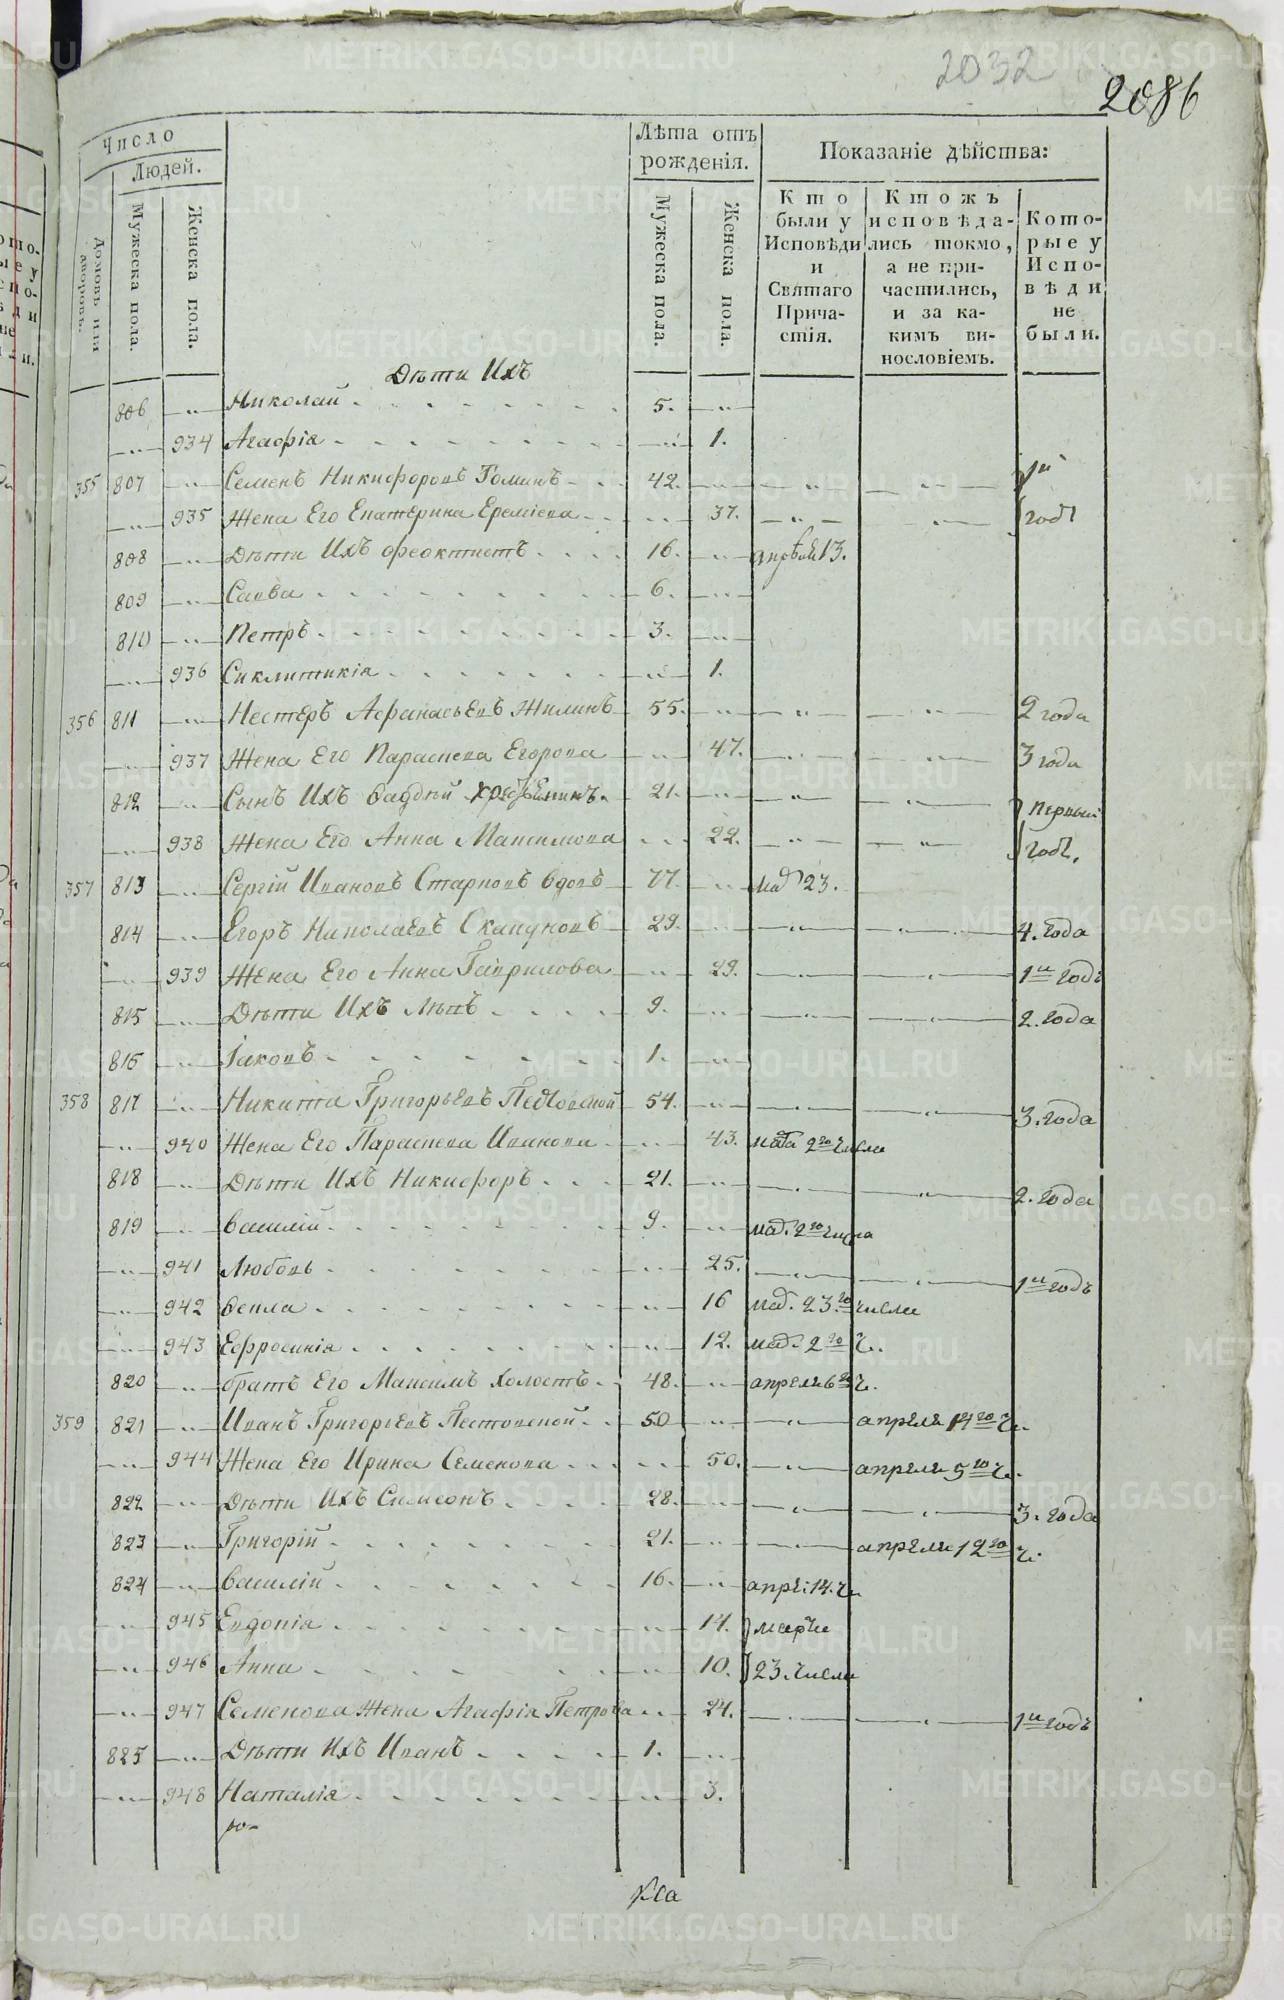 2032
2086
Число
Людей.
Лѣта отъ рожденія.
Показаніе дѣйства:
домовъ или дворовъ.
Мужеска пола.
Женска пола.
Мужеска пола.
Женска пола.
Кто были у Исповѣди и Святаго Причастія.
Ктожъ исповѣдались токмо, а не причастились, и за какимъ винословіемъ.
Которые у Исповѣди не были.
Дѣти Ихъ
806 Николай 5.
934 Агафія 1.
355 807 Семенъ Никифоровъ Томинъ 42. 1й
935 Жена Его Екатерина Еремѣева 37. годъ
808 Дѣти Ихъ Феоктистъ 16. апрѣля 13.
809 Савва 6.
810 Петръ 3.
936 Сиклитикія 1.
356 811 Нестеръ Афанасьевъ Жилинъ 55. 2 года
937 Жена Его Параскева Егорова 47. 3 года
812 Сынъ Ихъ 21. первый
938 Жена Его Анна Максимова 22. годъ.
357 813 Сергій Ивановъ Старковъ вдовъ 77. 23.
814 Егоръ Николаевъ Скакуновъ 29. 4. года
939 Жена Его Анна Гаврилова 29. 1й годъ
815 Дѣти Ихъ Левъ 9. 2. года
816 Іаковъ 1.
358 817 Никита Григорьевъ 54. 3. года
940 Жена Его Параскева Иванова 43. 2го числа
818 Дѣти Ихъ Никифоръ 21. 2. года
819 Василій 9. 2го числа
941 Любовь 25. 1й годъ
942 Векла 16 23.го числа
943 Ефросинія 12. 2го ч.
820 братъ Его Максимъ холостъ 48. апреля 6го ч.
359 821 Иванъ Григорьевъ Пестовской 50 апреля 14го ч.
944 Жена Его Ирина Семенова 50. апреля 5го ч.
822 Дѣти Ихъ Симеонъ 28. 3. года
823 Григорій 21. апреля 12го ч.
824 Василій 16. апре: 14. ч.
945 Евдокія 14. марта
946 Анна 10. 23. числа
947 Семенова Жена Агафія Петрова 24. 1й годъ
825 Дѣти Ихъ Иванъ 1.
948 Наталія 3.
METRIKI.GASO-URAL.RU